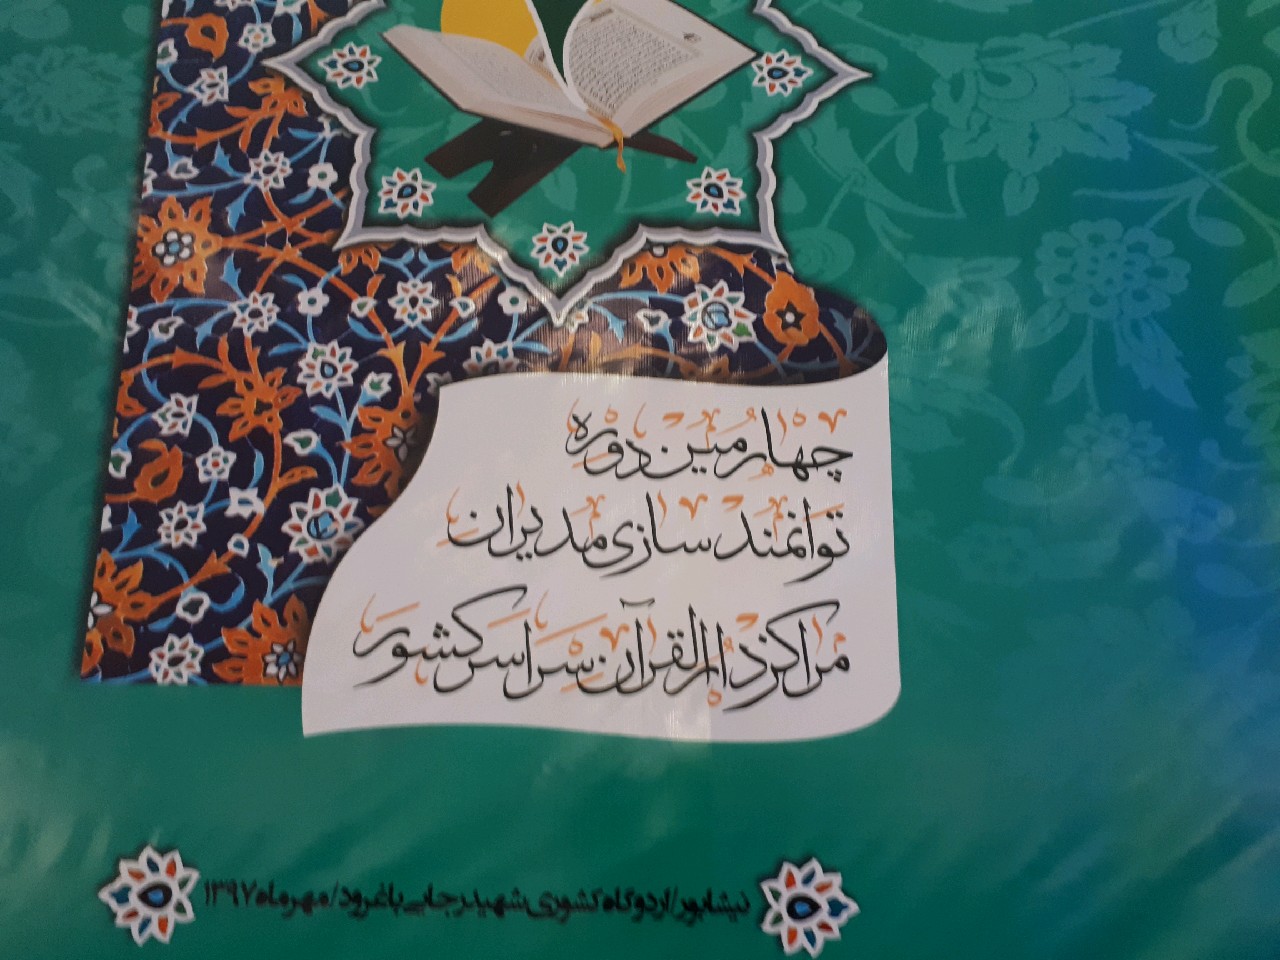 چهارمین دوره
توانمند سازی مدیران
مراکز دارالقرآن سراسر کشور
نیشابور/اردوگاه کشوری شهید رجایی باغرود/مهرماه ۱۳۹۷